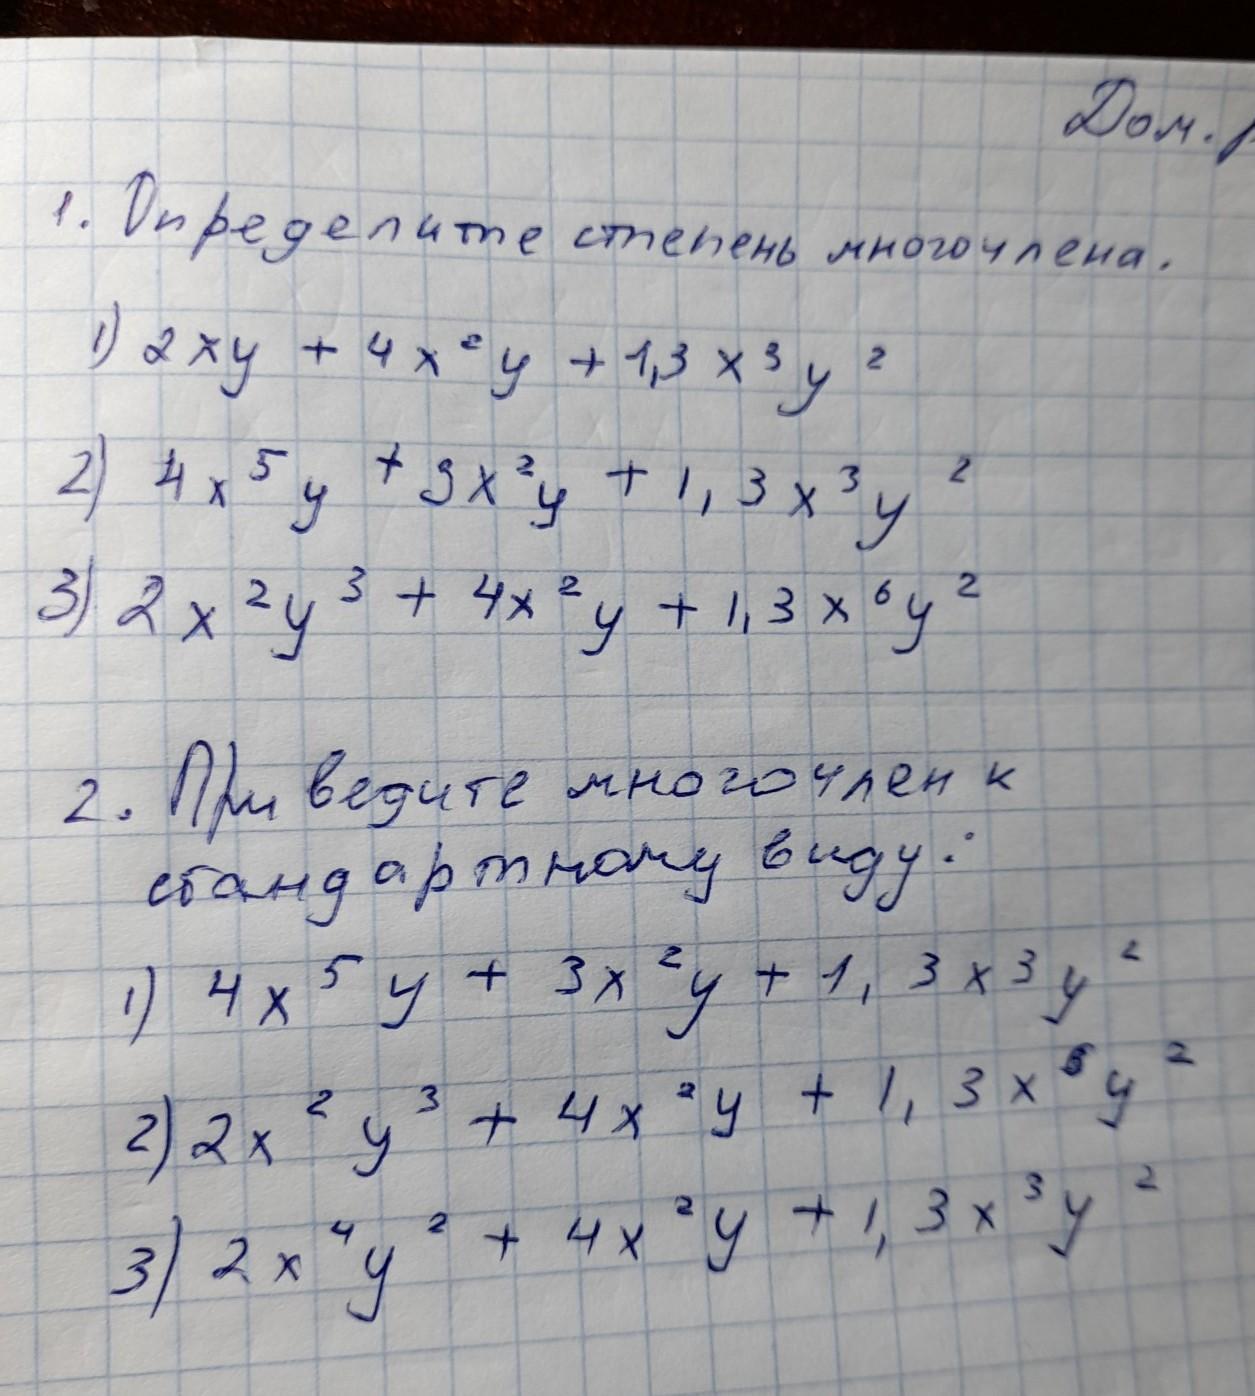 Дом.
1. Определите степень многочлена.
1) 2xy + 4x²y + 1,3x³y²
2) 4x⁵y + 3x²y + 1,3x³y²
3) 2x²y³ + 4x²y + 1,3x⁶y²
2. Приведите многочлен к
стандартному виду:
1) 4x⁵y + 3x²y + 1,3x³y²
2) 2x²y³ + 4x²y + 1,3x⁶y²
3) 2x⁴y² + 4x²y + 1,3x³y²